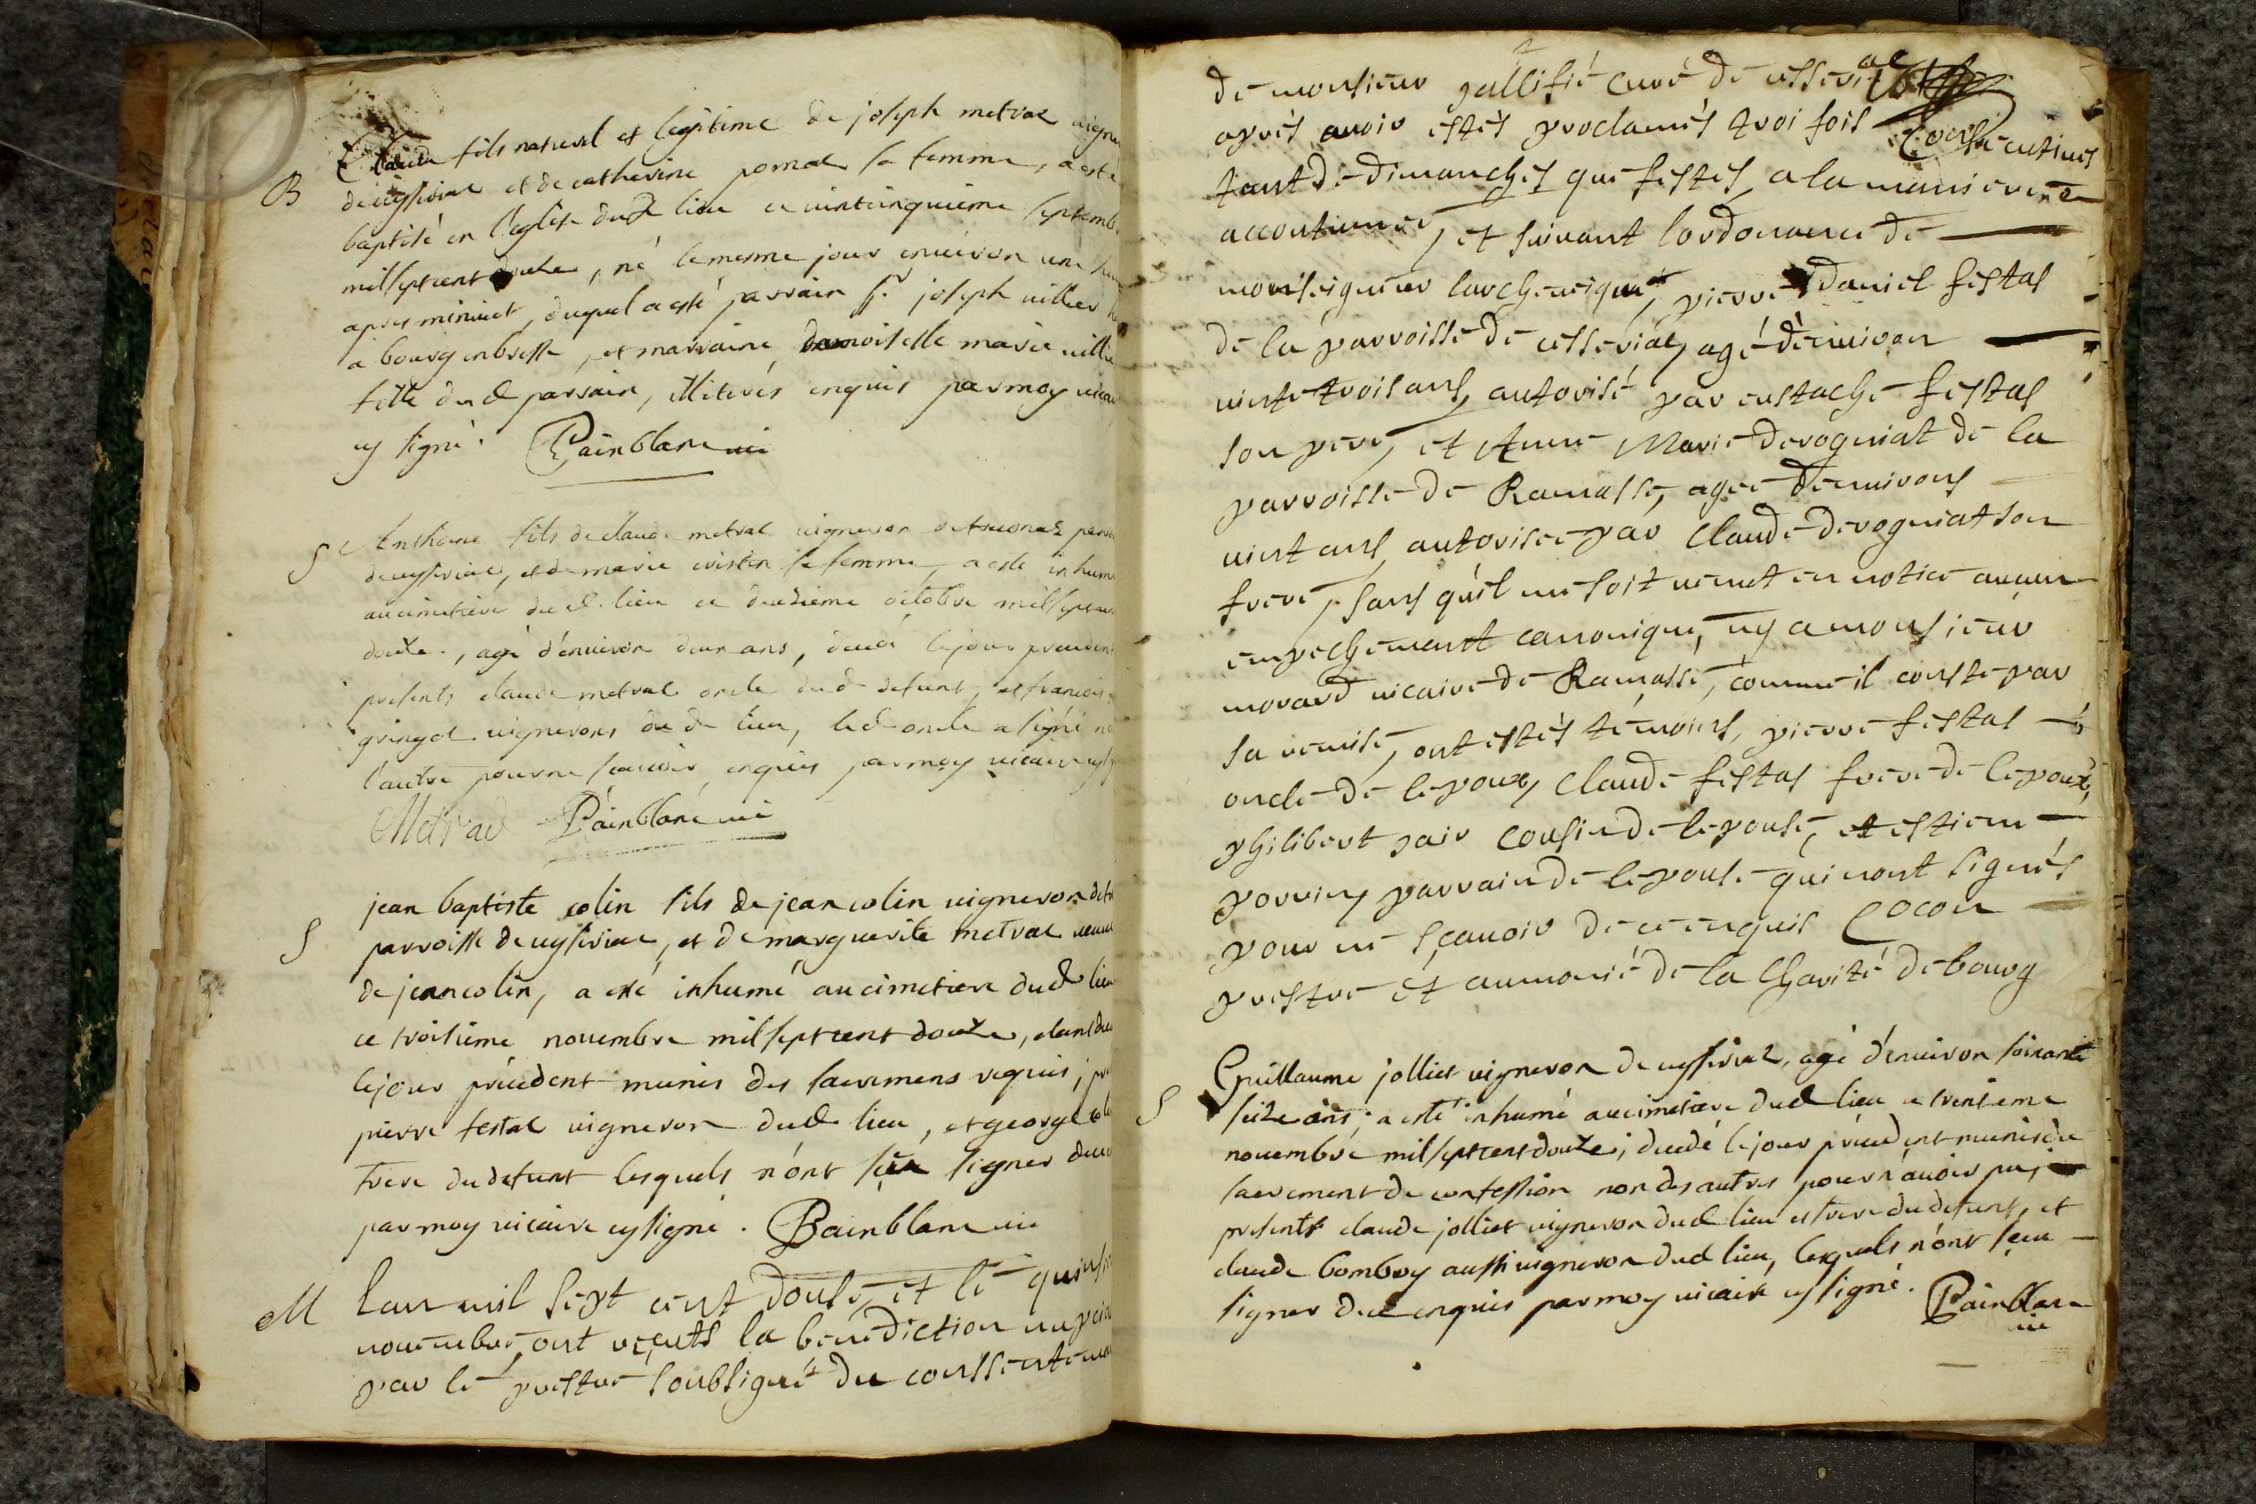 B
Claude fils naturel et legitime de joseph metral vigne
de ceyseriat et de catherine pomat sa femme, a esté
baptisé en l'eglise dud lieu ce vintcinquieme septemb
mil sept cent douze, né le mesme jour environ une heu
apres minuict, duquel a esté parrain sr. joseph villier
a bourg en bresse, et marraine damoiselle marie villie
fille dud parrain, illiterés enquis par moy vicai
cy signé. Painblanc vic
S
Anthoine fils de claude metral vigneron de parr
de ceyseriat, et de marie sa femme, a esté inhum
au cimetiere dud. lieu ce deuxieme octobre mil sept cen
douze, agé d'environ deux ans, decedé le jour precedent
presents claude metral oncle dud defunt, et francois
gringet vignerons dud lieu, led oncle a signé
l'autre pour ne scavoir enquis par moy vicaire cy s
Metral Painblanc vic
S
jean baptiste colin fils de jean colin vigneron de
parroisse de ceyseriat, et de marguerite metral veuve
de jean colin, a esté inhumé au cimetiere dud lieu
ce troisieme novembre mil sept cent douze,
le jour precedent munis des sacremens requis, pr
pierre festal vigneron dud lieu, et george col
frere du defunt lesquels n'ont sceu signer
par moy vicaire cy signé. Painblanc vic
M
Lan mil sept cent douse, et le quinsi
novembre, ont reçuts la benediction nupcia
par le prestre soubsigné du conssentem
de monsieur curé de cesseriac
après avoir estés proclamés troi fois consecutives
tant de dimanches que festes a la maniere
accoutumée, et suivant lordonance de
monseigneur larcheveique, pierre daniel festas
de la parroisse de cesseriac, agé d'environ
vinte trois ans, autorisé par eustache festas
son pere, et Anne Marie derogniat de la
parroisse de Ramasse, agee denvirons
vint ans, autorisée par Claude derogniat son
frere, sans qu'il me soit venut en notice aucun
empechement cannonique, ny a monsieur
morard vicaire de Ramasse, comme il conste par
sa remise, ont estés témoins, pierre festas
oncle de lepoux, Claude festas frere de lepoux,
philibert cousin de lepouse, et estiene
parrain de lepouse qui n'ont signés
pour ne sçavoir de ce enquis Cocon
prestre et aumonié de la Charité de bourg
S
Guillaume jolliet vigneron de ceyseriat, agé d'environ soixante
seize ans, a esté inhumé au cimetiere dud lieu ce trentieme
novembre mil sept cent douze, decedé le jour precedent munis du
sacrement de confession non des autres pour n'avoir pu,
presents claude jolliet vigneron dud lieu et frere du defunt, et
claude bomboy aussi vigneron dud lieu, lesquels n'ont sceu
signer de ce enquis par moy vicaire cy signé. Painblanc
vic